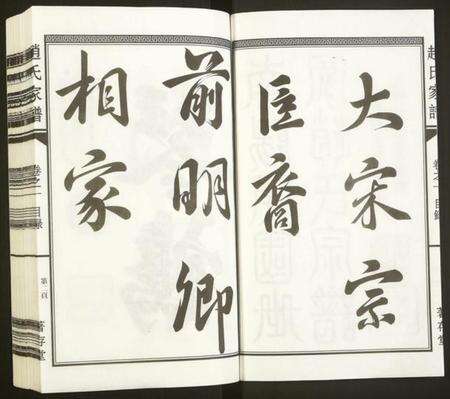 趙氏家譜
卷之一 目錄
大宋宗
臣裔
前明卿
相家
趙氏家譜
卷之一 目錄
第二頁